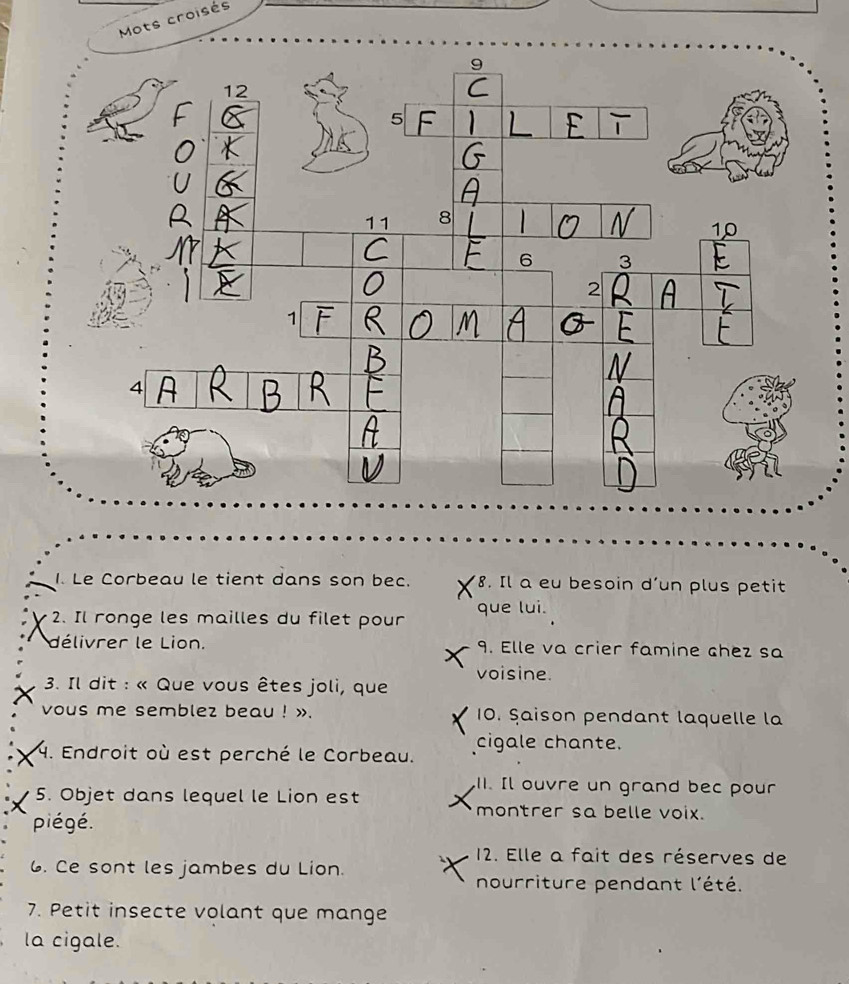 Mots croisés
9
C
12
F
5 F I L E T
O K
G
U
A
R
11 8 L I O N 10
M C E 6 3 E
I O 2 R A T
1 F R O M A G E E
B N
4 A R B R E A
A R
U D
1. Le Corbeau le tient dans son bec.
2. Il ronge les mailles du filet pour
délivrer le Lion.
3. Il dit : « Que vous êtes joli, que
vous me semblez beau ! ».
4. Endroit où est perché le Corbeau.
5. Objet dans lequel le Lion est
piégé.
6. Ce sont les jambes du Lion.
7. Petit insecte volant que mange
la cigale.
8. Il a eu besoin d'un plus petit
que lui.
9. Elle va crier famine chez sa
voisine.
10. Saison pendant laquelle la
cigale chante.
11. Il ouvre un grand bec pour
montrer sa belle voix.
12. Elle a fait des réserves de
nourriture pendant l'été.